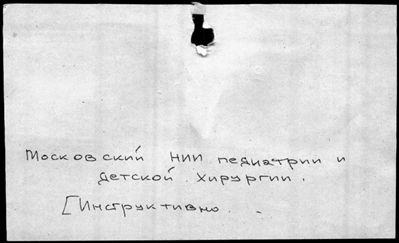 Московский НИИ педиатрии и
детской хирургии.
[Инструктивно. .